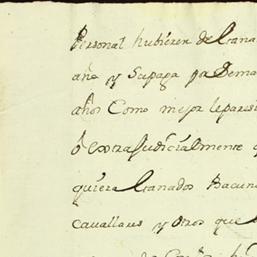 Personal hubieren de Gana
año y Supaga por Dema
años Como mejor leparesi
ô extraJudicialmente q
quiera Ganados Bacun
cavallaus y otros que